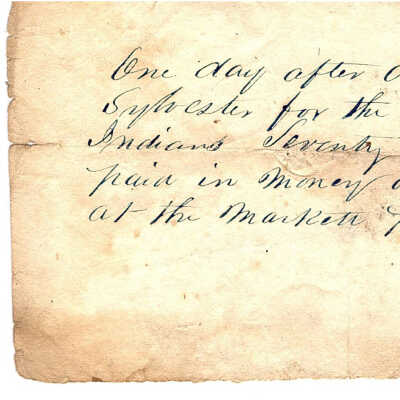 One day after
Sylvester for the
Indians Seventy
paid in money
at the Markett